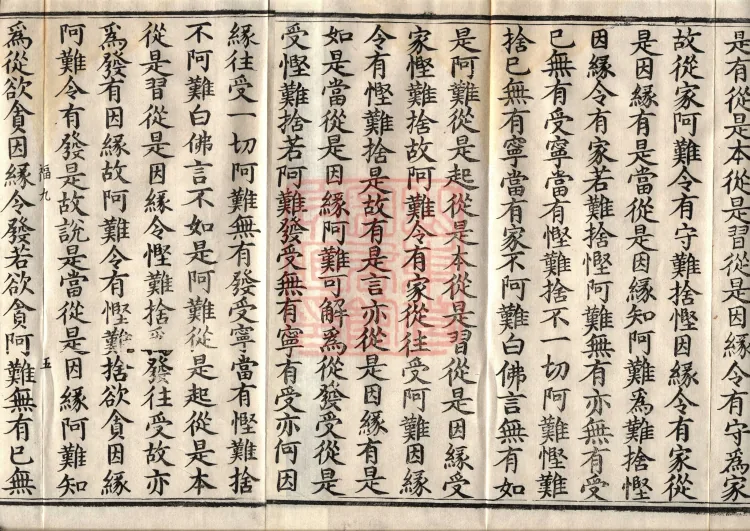 是有從是本從是習從是因緣令有守為家
故從家阿難令有守難捨慳因緣令有家從
是因緣有是當從是因緣知阿難為難捨慳
因緣令有家若難捨慳阿難無有亦無有受
已無有受寧當有慳難捨不一切阿難慳難
捨已無有寧當有家不阿難白佛言無有如
是阿難從是起從是本從是習從是因緣受
家慳難捨故阿難令有家從往受阿難因緣
令有慳難捨是故有是言亦從是因緣有是
如是當從是因緣阿難可解為從發受從是
受慳難捨若阿難發受無有寧有受亦何因
緣往受一切阿難無有發受寧當有慳難捨
不阿難白佛言不如是阿難從是起從是本
從是習從是因緣令慳難捨 發往受故亦
為發有因緣故阿難令有慳難捨欲貪因緣
阿難令有發是故說是當從是因緣阿難知
福九 五
為從欲貪因緣令發若欲貪阿難無有已無